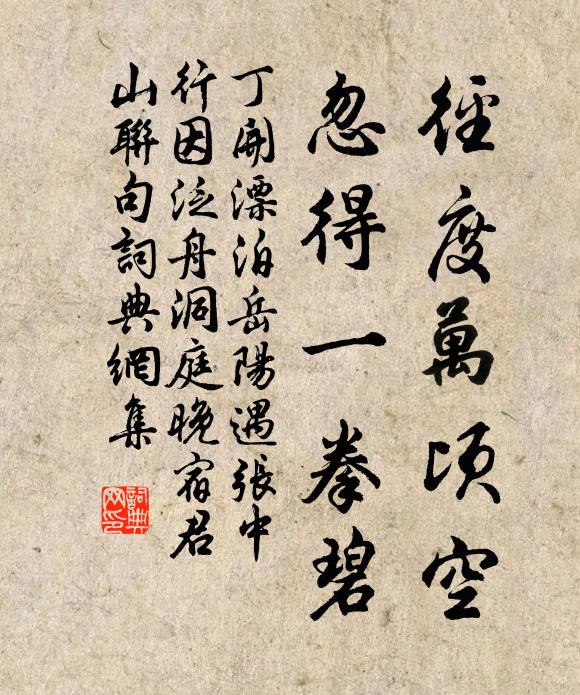 徑度萬頃空
忽得一拳碧
丁開漂泊岳陽遇張中
行因泛舟洞庭晚宿君
山聯句詞典網集
詞典
网印